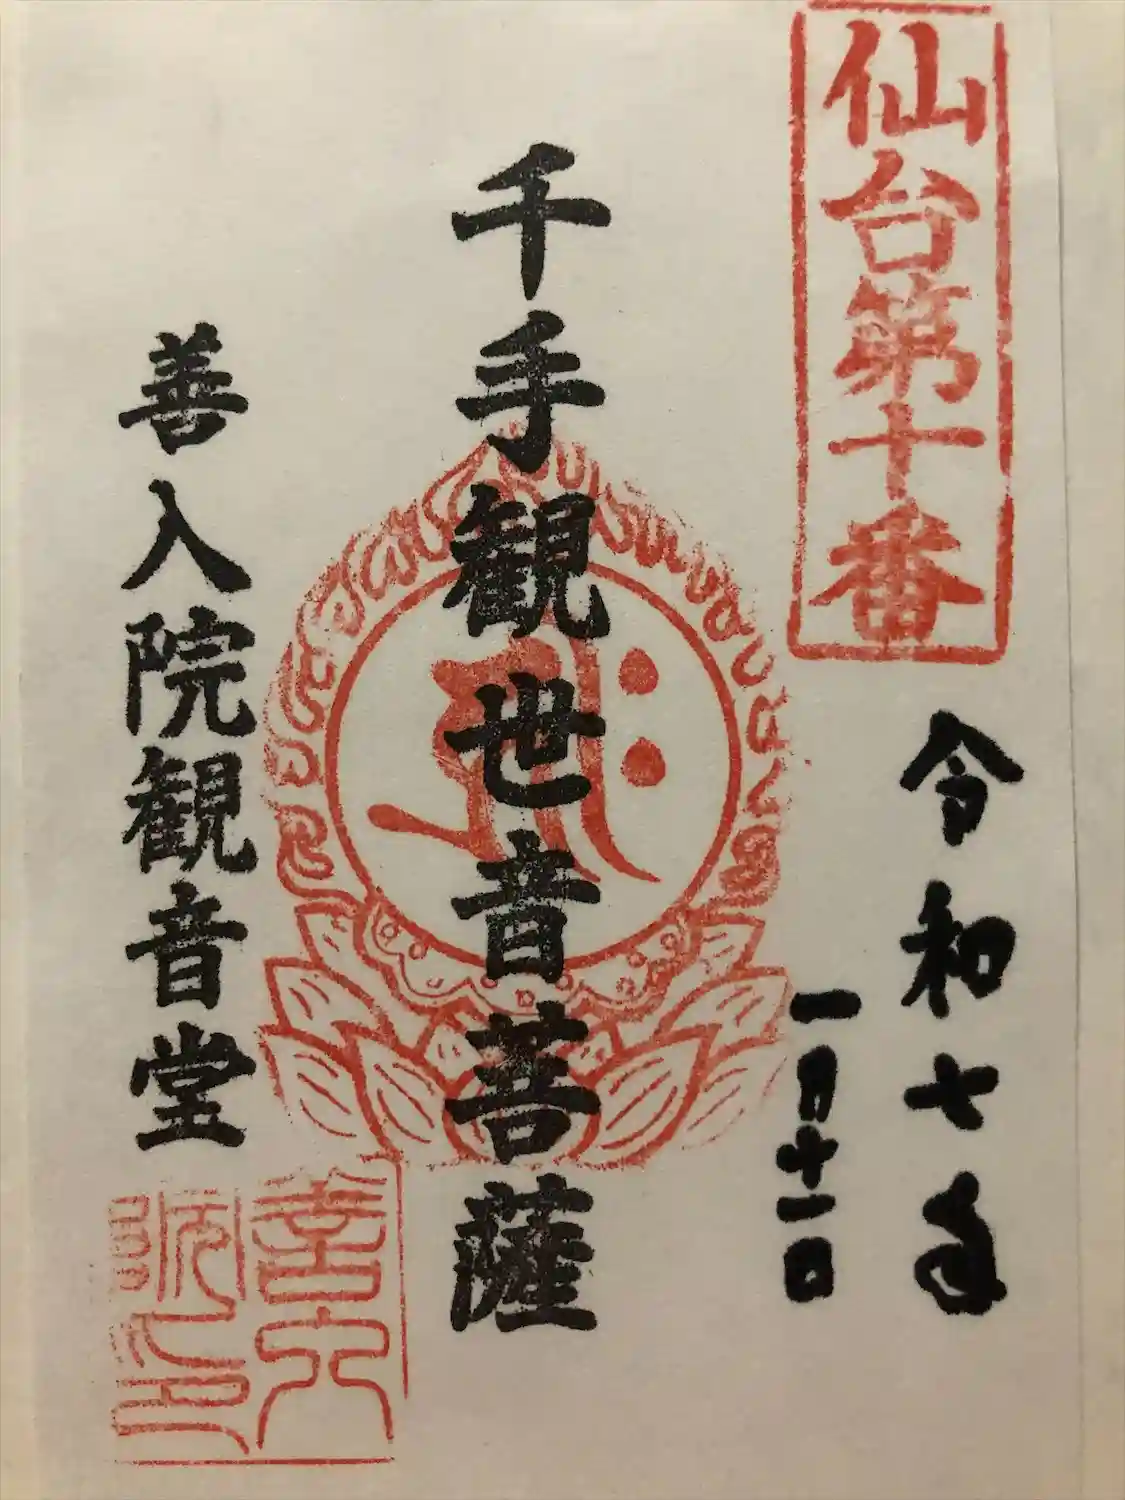 仙台第十番
令和七年
一月十一日
千手観世音菩薩
善入院観音堂
善入
院印